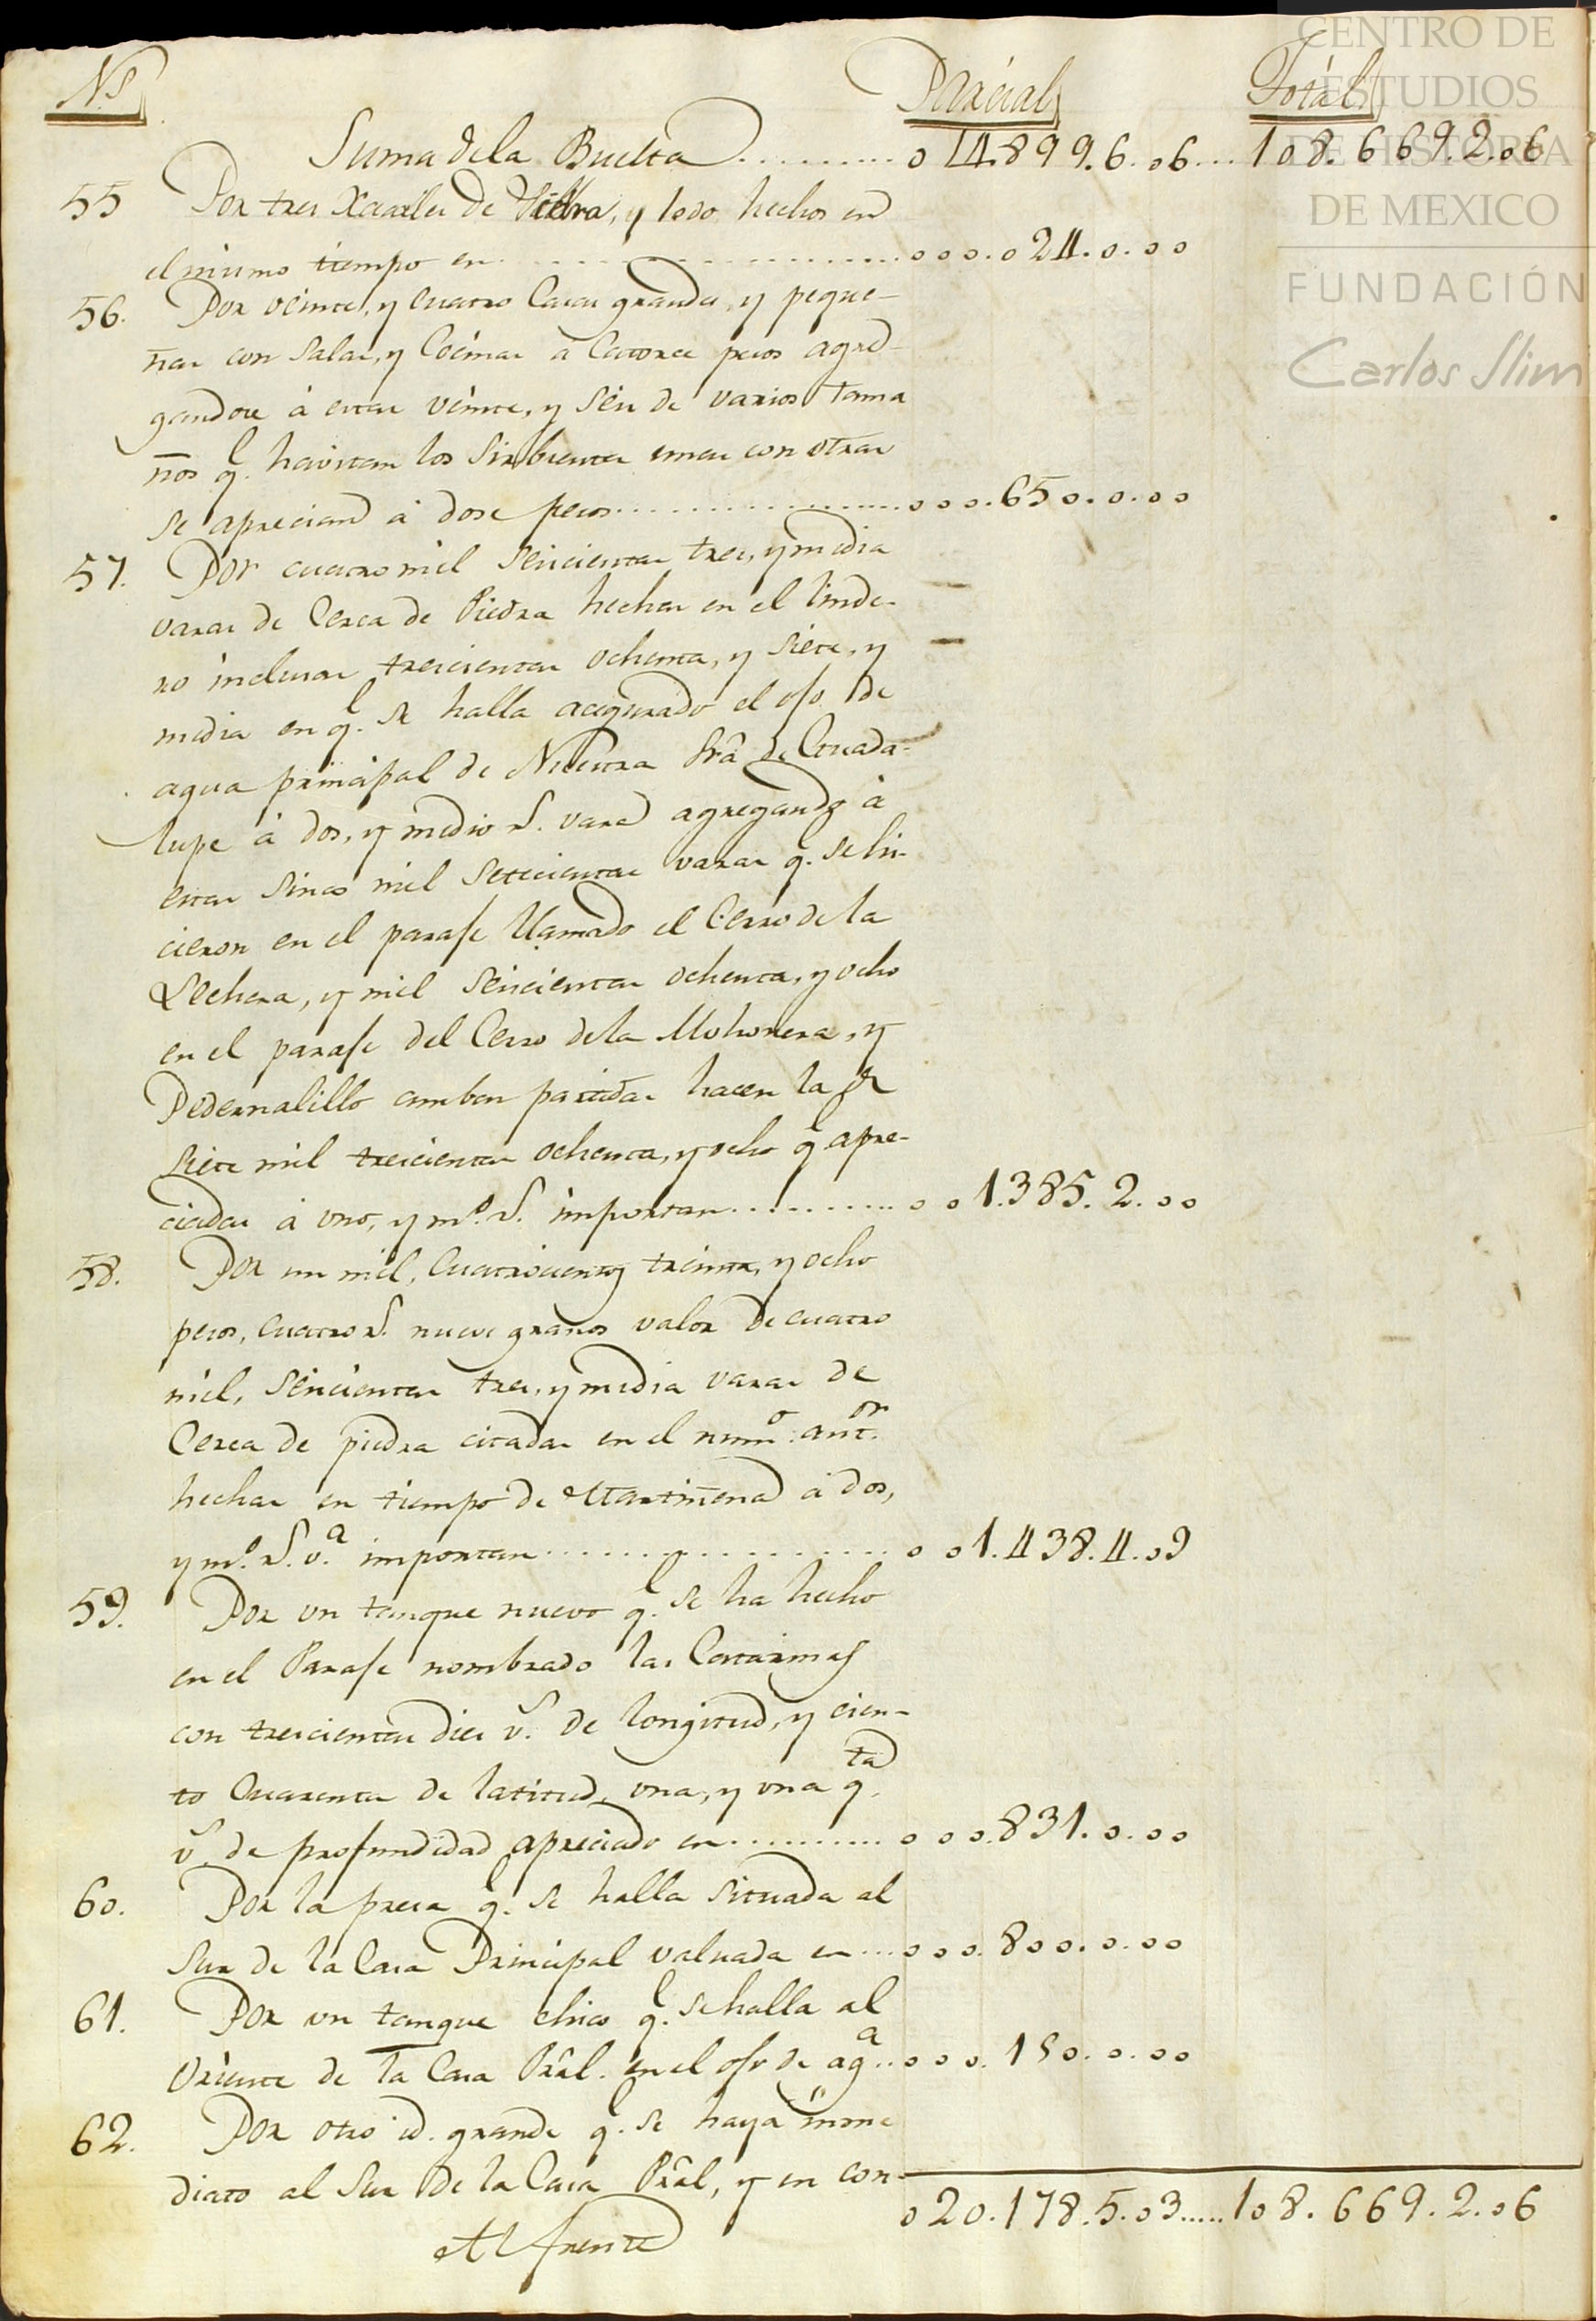 Ns Parcial Total
Suma de la Buelta .......... 014.899.6.06.... 108.669.2.06
55 Por tres Xacales de Piedra, y lodo hechos en
el mismo tiempo en ................ 000.024.0.00
56. Por veinte, y cuatro Casas grandes, y peque-
ñas con Salas, y Cocinas a Catorce pesos agre-
gandose à estas veinte, y seis de varios tama
ños q.e havitan los Sirbientes emas con otras
se aprecian à dose pesos .................. 000.650.0.00
57. Por cuatro mil Seiscientas tres, y media
varas de Cerca de Piedra hechas en el linde-
ro inclusas trescientas ochenta, y siete, y
media en q.e se halla asegurado el ojo de
agua principal de Nuestra Srâ de Guada-
lupe à dos, y medio r.s vara agregando à
estas Sinco mil Setecientas varas q.e se hi-
cieron en el paraje llamado el Cerro de la
Lechera, y mil Seiscientas ochenta, y ocho
en el paraje del Cerro de la Mohonera, y
Pedernalillo ambas partidas hacen la de
siete mil trescientas ochenta, y ocho q.e apre-
ciadas à uno, y m.o r.s importan .......... 001.385.2.00
58. Por un mil, Cuatrocientos treinta, y ocho
pesos, cuatro r.s nueve granos valor de cuatro
mil, Seiscientas tres, y media varas de
Cerca de piedra citadas en el num.o ant.or
hechas en tiempo de Martiñena à dos,
y m.o r.s v.a importan .................. 001.438.4.09
59. Por un tanque nuevo q.e se ha hecho
en el Paraje nombrado las
con trescientas dies v.s de longitud, y cien-
to Cuarenta de latitud, una, y una q.ta
v.s de profundidad apreciado en .......... 000.831.0.00
60. Por la presa q.e se halla situada al
Sur de la Casa Principal valuada en .... 000.800.0.00
61. Por un tanque chico q.e se halla al
Oriente de la Casa Prâl. en el ojo de ag.a .. 000.150.0.00
62. Por otro id. grande q.e se haya inme
diato al Sur de la Casa Prâl, y en con-
020.178.5.03..... 108.669.2.06
Al frente
CENTRO DE
ESTUDIOS
DE HISTORIA
DE MEXICO
FUNDACIÓN
Carlos Slim